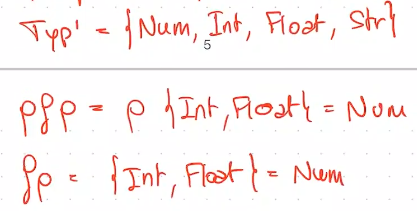 Typ' = {Num, Int, Float, Str}
5
ρ⨍ρ = ρ {Int, Float} = Num
⨍ρ = {Int, Float} = Num